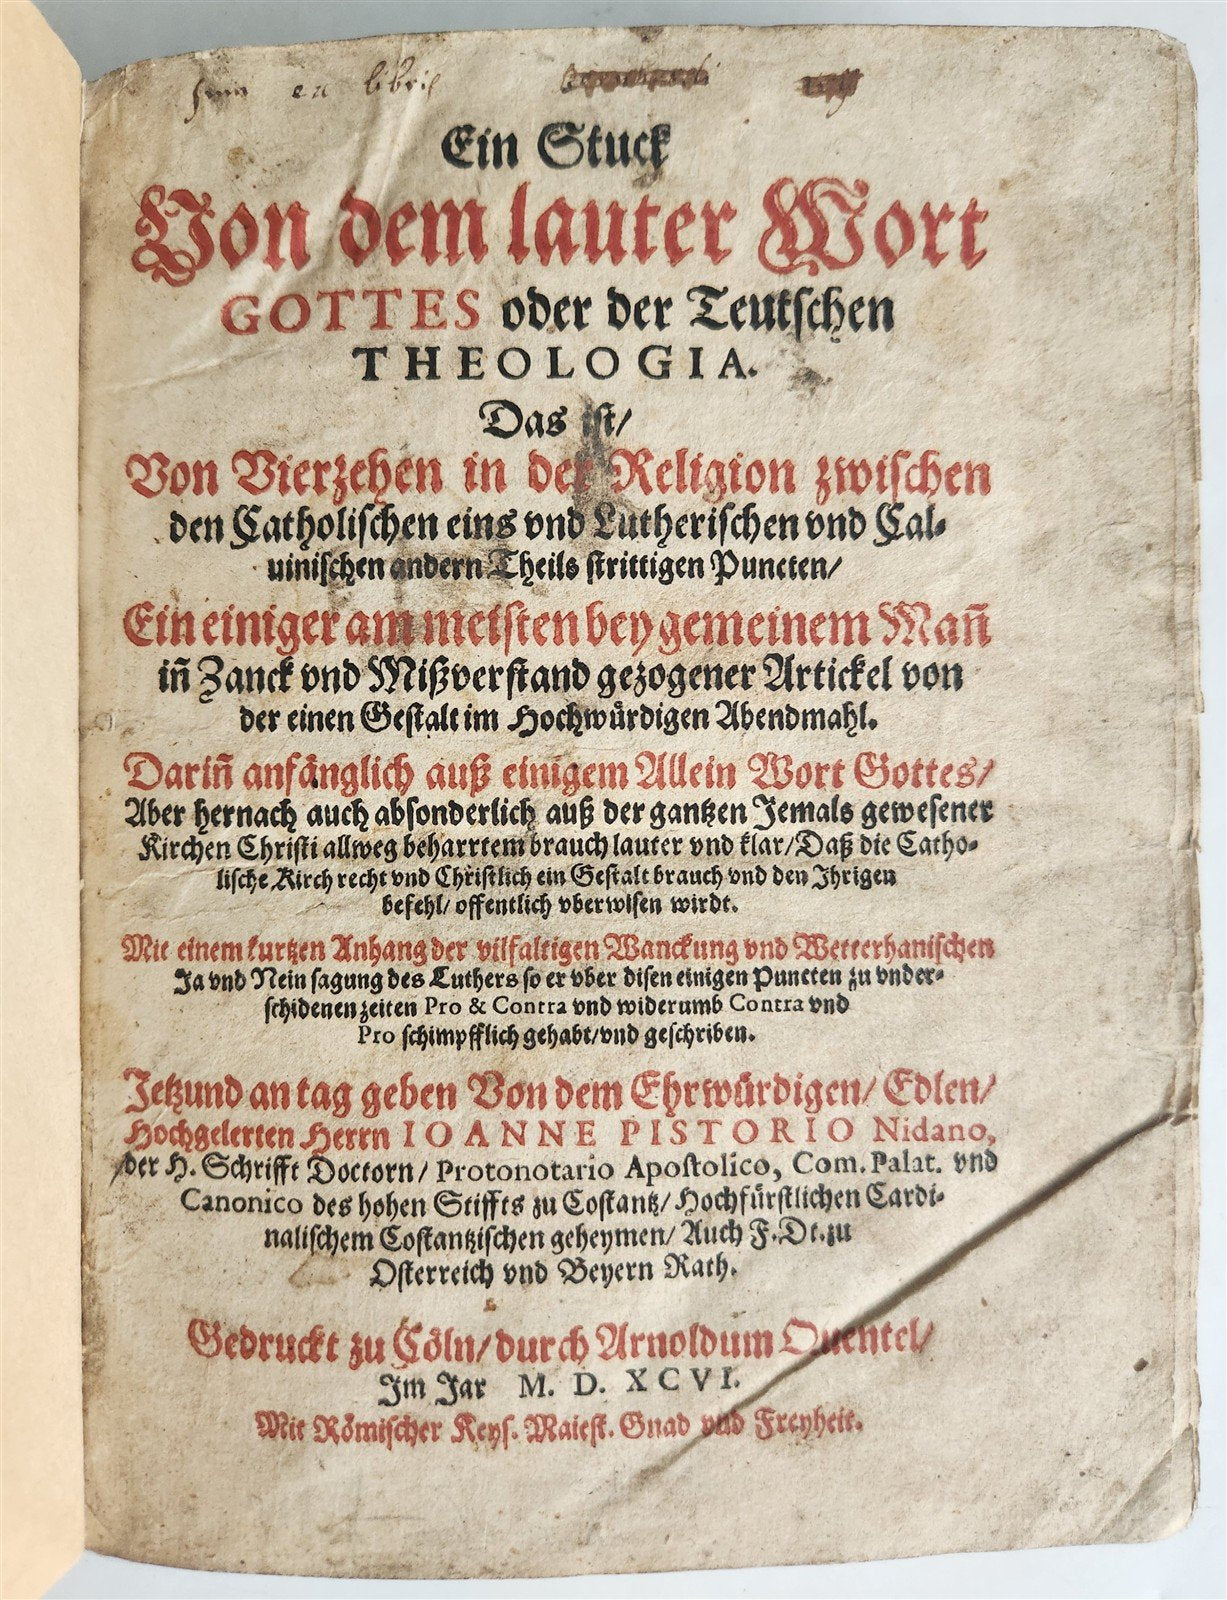 ex libris
Ein Stuck
Von dem lauter Wort
GOTTES oder der Teutschen
THEOLOGIA.
Das ist/
Von Vierzehen in der Religion zwischen
den Catholischen eins vnd Lutherischen vnd Cal-
uinischen andern Theils strittigen Puncten/
Ein einiger am meisten bey gemeinem Mañ
iñ Zanck vnd Mißverstand gezogener Artickel von
der einen Gestalt im Hochwürdigen Abendmahl.
Dariñ anfänglich auß einigem Allein Wort Gottes/
Aber hernach auch absonderlich auß der gantzen Jemals gewesener
Kirchen Christi allweg beharrtem brauch lauter vnd klar/ Daß die Catho-
lische Kirch recht vnd Christlich ein Gestalt brauch vnd den Jhrigen
befehl/ offentlich vberwisen wirdt.
Mit einem kurtzen Anhang der vilfaltigen Wanckung vnd Wetterhanischen
Ja vnd Nein sagung des Luthers so er vber disen einigen Puncten zu vnder-
schidenen zeiten Pro & Contra vnd widerumb Contra vnd
Pro schimpfflich gehabt/ vnd geschriben.
Jetzund an tag geben Von dem Ehrwürdigen/ Edlen/
Hochgelerten Herrn IOANNE PISTORIO Nidano,
der H. Schrifft Doctorn/ Protonotario Apostolico, Com. Palat. vnd
Canonico des hohen Stiffts zu Costantz/ Hochfürstlichen Cardi-
nalischem Costantzischen geheymen/ Auch F. Dt. zu
Osterreich vnd Beyern Rath.
Gedruckt zu Cöln/ durch Arnoldum Quentel/
Im Jar M. D. XCVI.
Mit Römischer Keys. Maiest. Gnad vnd Freyheit.